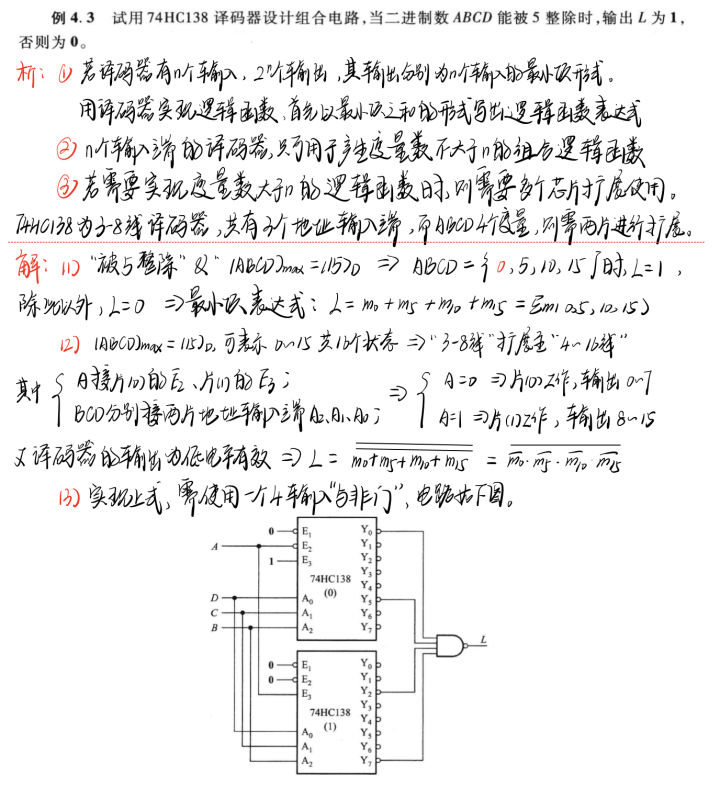 例 4.3 试用 74HC138 译码器设计组合电路,当二进制数 ABCD 能被 5 整除时,输出 L 为 1,
否则为 0。
析:① 若译码器有n个输入,2ⁿ个输出,其输出分别为n个输入的最小项形式。
用译码器实现逻辑函数,首先以最小项之和的形式写出逻辑函数表达式
② n个输入端的译码器,只可用于产生变量数不大于n的组合逻辑函数
③ 若需要实现变量数大于n的逻辑函数时,则需要多个芯片扩展使用。
74HC138为3-8线译码器,共有3个地址输入端,而ABCD4个变量,则需两片进行扩展。
解:(1) "被5整除" & "(ABCD)max=(15)D ⇒ ABCD={0,5,10,15}时,L=1,
除此以外,L=0 ⇒最小项表达式:L=m0+m5+m10+m15=Σm(0,5,10,15)
(2) (ABCD)max=(15)D,可表示 0~15 共16个状态 ⇒"3-8线"扩展至"4-16线"
其中 { A接片(0)的E̅2、片(1)的E3; ⇒ { A=0 ⇒片(0)工作,输出 0~7
BCD分别接两片地址输入端A2、A1、A0; A=1 ⇒片(1)工作,输出 8~15
又译码器的输出为低电平有效 ⇒ L = \overline{\overline{m0+m5+m10+m15}} = \overline{\overline{m0}·\overline{m5}·\overline{m10}·\overline{m15}}
(3) 实现上式,需使用一个4输入"与非门",电路如下图。
0 E1 Y0
A E2 Y1
1 E3 Y2
74HC138 Y3
(0) Y4
D A0 Y5
C A1 Y6
B A2 Y7
L
0 E1 Y0
0 E2 Y1
E3 Y2
74HC138 Y3
(1) Y4
A0 Y5
A1 Y6
A2 Y7